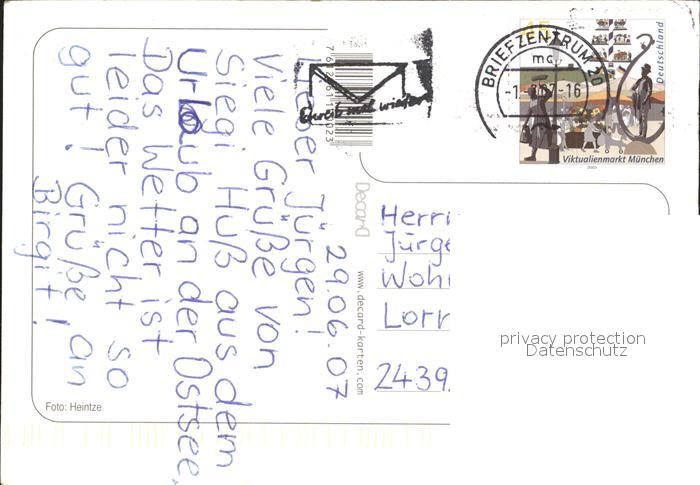 29.06.07
Lieber Jürgen!
Viele Grüße von
Siegi Huß aus dem
Urlaub an der Ostsee.
Das Wetter ist
leider nicht so
gut! Grüße an
Birgit!
Foto: Heintze
DecarD
www.decard-karten.com
Schreib mal wieder
BRIEFZENTRUM 20
mc
-1.-7.07-16
45
Deutschland
Viktualienmarkt München
2003
Herrn
Jürge
Wohn
Lorn
2439
privacy protection
Datenschutz